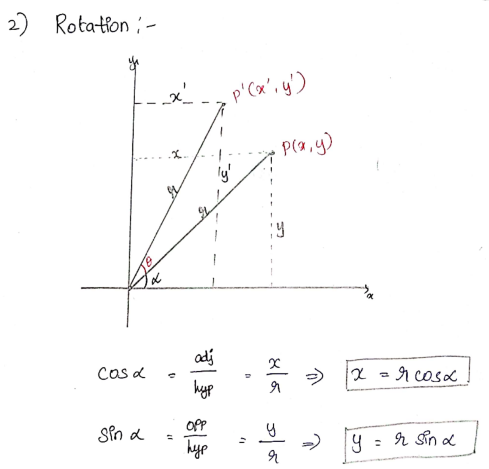 2) Rotation :-
y
x'
p'(x', y')
x
p(x, y)
y'
r
r
y
θ
α
x
cos α = adj/hyp = x/r ⇒ x = r cos α
sin α = opp/hyp = y/r ⇒ y = r sin α